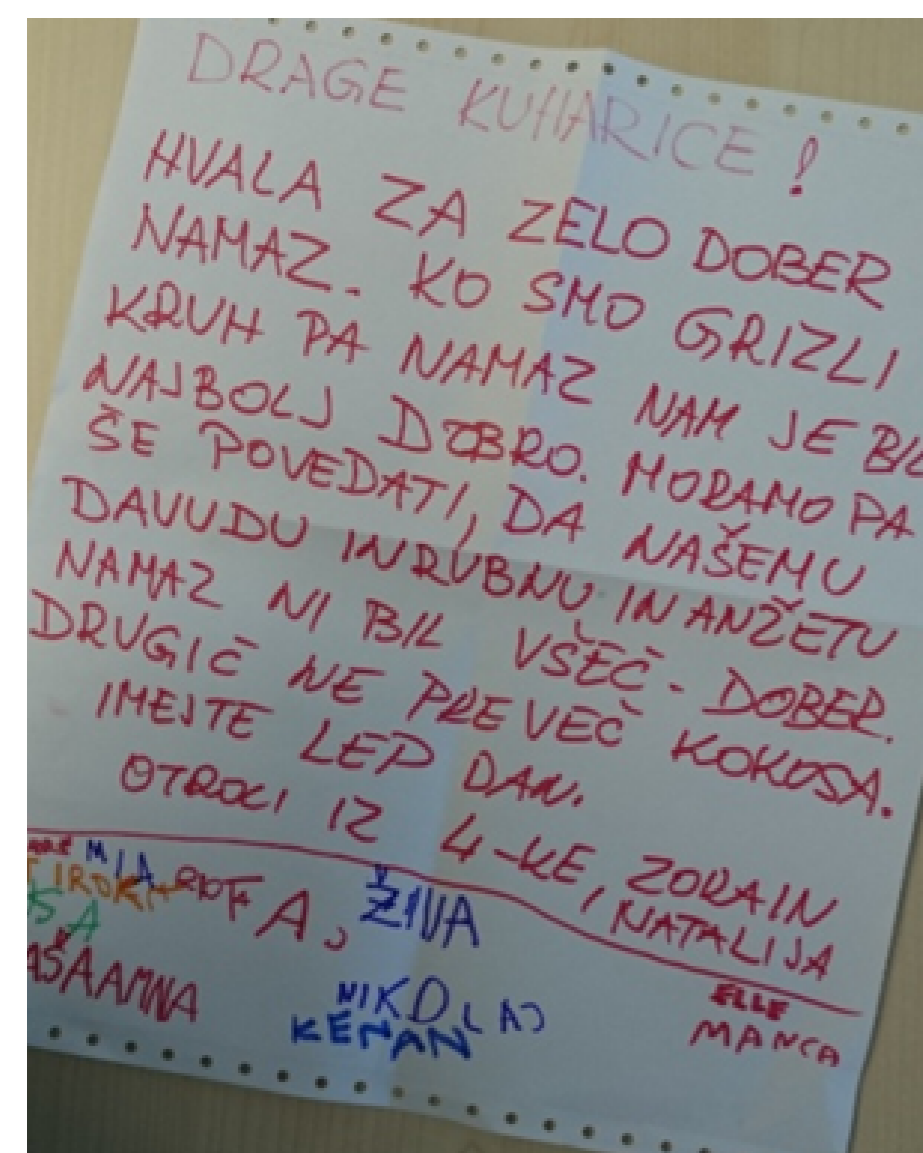 DRAGE KUHARICE!
HVALA ZA ZELO DOBER
NAMAZ. KO SMO GRIZLI
KRUH PA NAMAZ NAM JE BIL
NAJBOLJ DOBRO. MORAMO PA
ŠE POVEDATI, DA NAŠEMU
DAVUDU IN RUBNU IN ANŽETU
NAMAZ NI BIL VŠEČ - DOBER.
DRUGIČ NE PREVEČ KOKOSA.
IMEJTE LEP DAN.
OTROCI IZ 4-KE, ZORA IN
NATALIJA
MIA
ŽIVA
AMNA
NIKOLAJ
ELLE
KENAN
MANCA